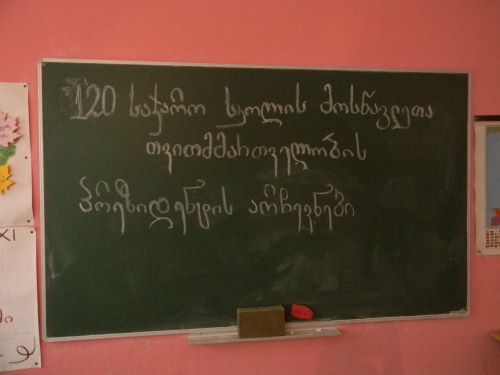 120 საჯარო სკოლის მოსწავლეთა
თვითმმართველობის
პრეზიდენტის არჩევნები
XI